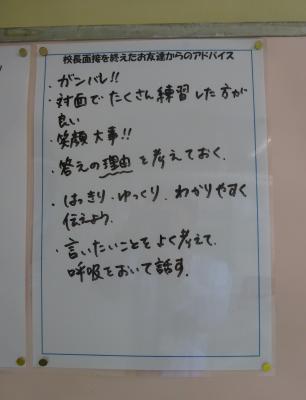 校長面接を終えたお友達からのアドバイス
・ガンバレ!!
・対面でたくさん練習した方が
良い
・笑顔大事!!
・答えの理由を考えておく.
・はっきり・ゆっくり、わかりやすく
伝えよう.
・言いたいことをよく考えて.
呼吸をおいて話す.